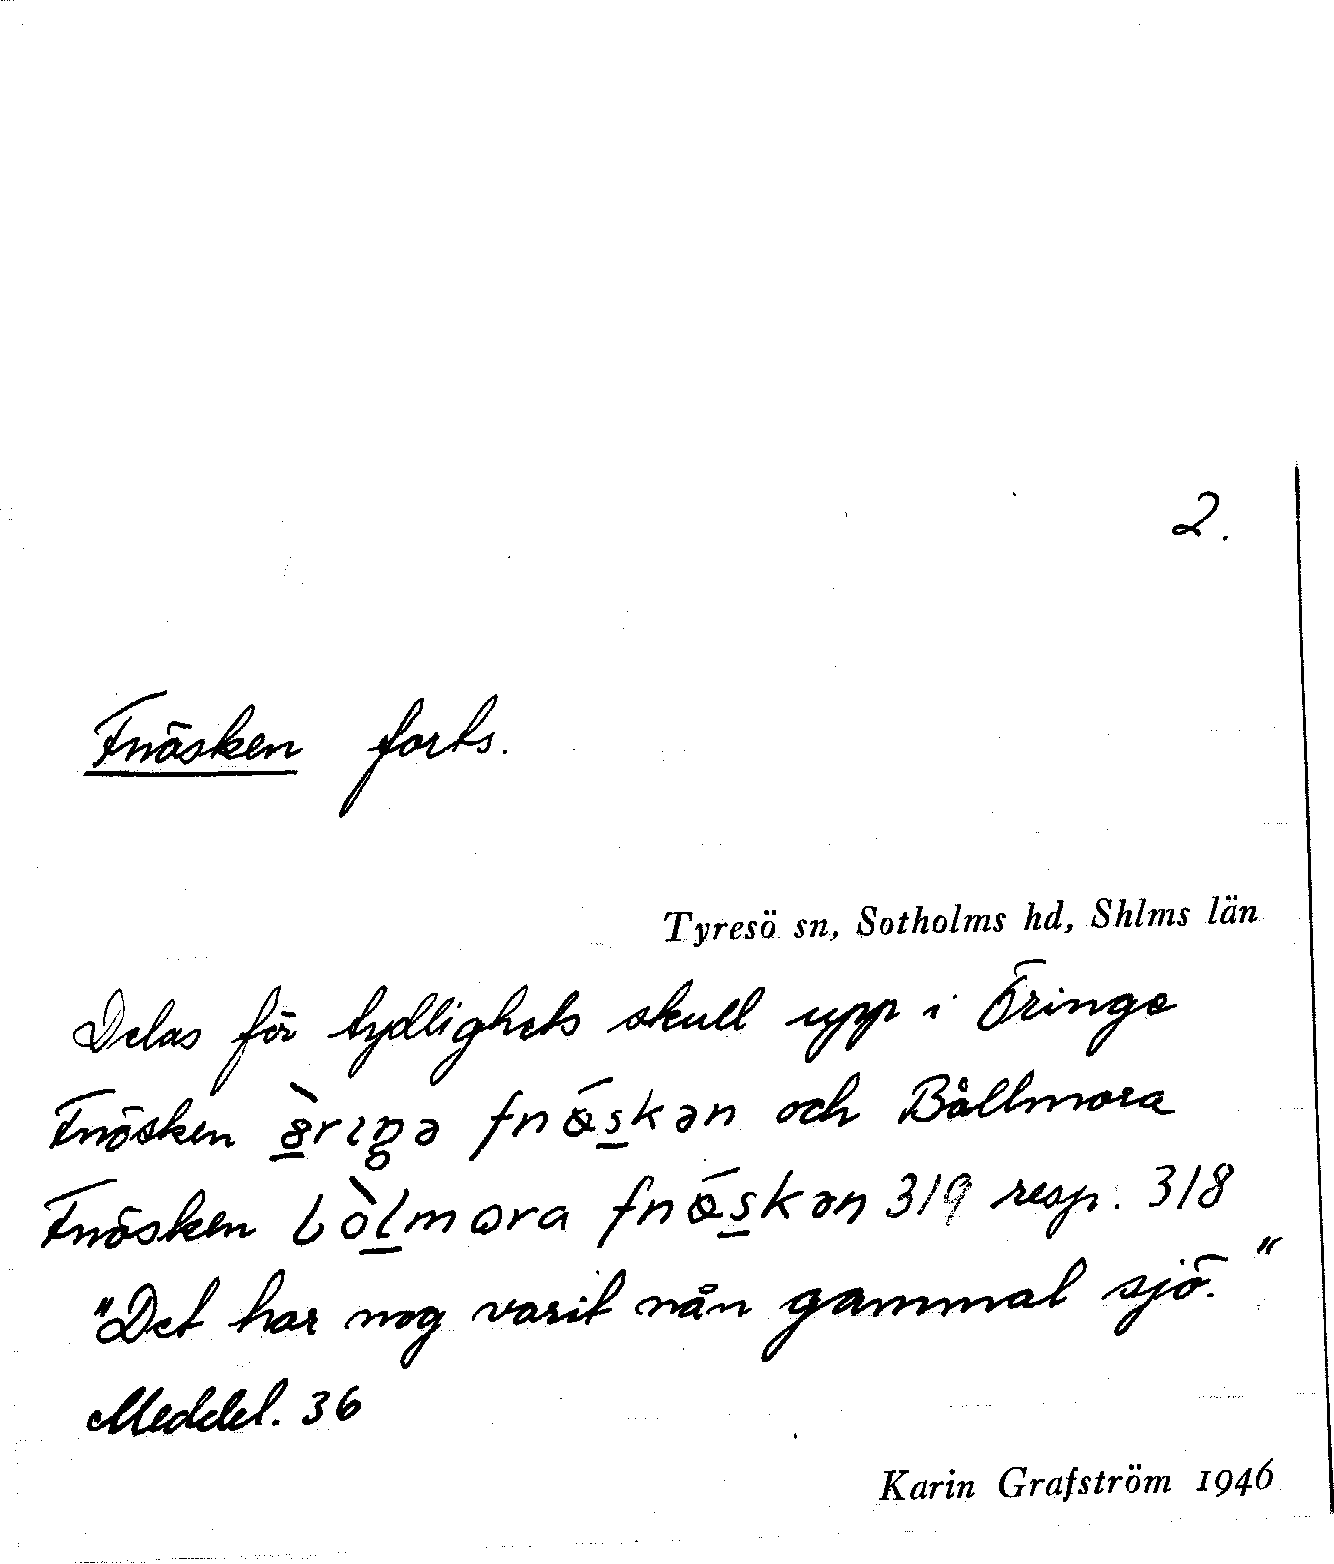 2.
Fnösken forts.
Tyresö sn, Sotholms hd, Shlms län
Delas för tydlighets skull upp i Öringe
Fnösken och Bållmora
Fnösken 319 resp. 318
"Det har nog varit nån gammal sjö."
Meddel. 36
Karin Grafström 1946